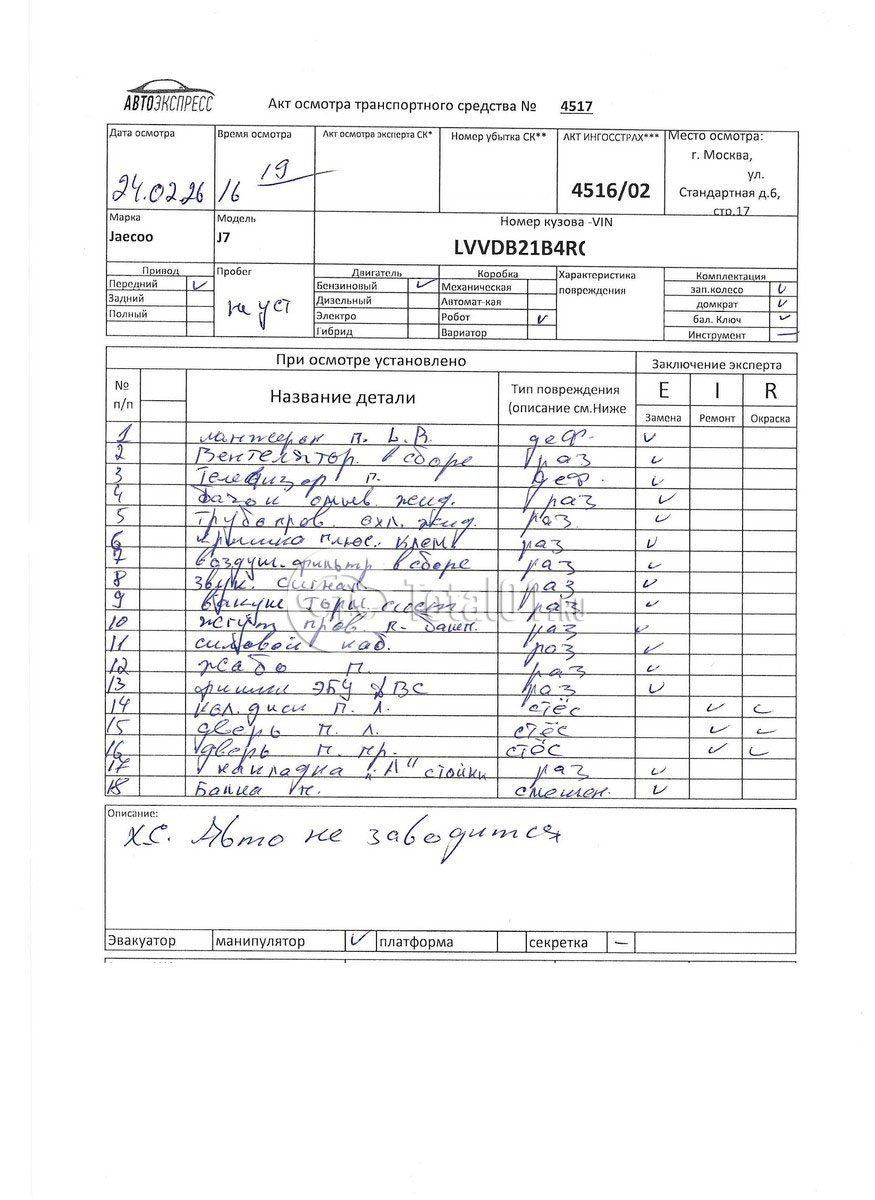 АВТОЭКСПРЕСС
Акт осмотра транспортного средства № 4517
Дата осмотра Время осмотра Акт осмотра эксперта СК* Номер убытка СК** АКТ ИНГОССТРАХ*** Место осмотра:
г. Москва,
ул.
24.02.26 16 19 4516/02 Стандартная д.6,
стр.17
Марка Модель Номер кузова -VIN
Jaecoo J7 LVVDB21B4R
Привод Пробег Двигатель Коробка Характеристика повреждения Комплектация
Передний ✓ не уст Бензиновый ✓ Механическая зап.колесо ✓
Задний Дизельный Автомат-кая домкрат ✓
Полный Электро Робот ✓ бал. Ключ ✓
Гибрид Вариатор Инструмент —
При осмотре установлено Заключение эксперта
№ п/п Название детали Тип повреждения (описание см.Ниже E I R
Замена Ремонт Окраска
1 лонжерон п. L.R. деф. ✓
2 Вентелятор в сборе раз ✓
3 Телевизор п. деф. ✓
4 бачок омыв. жид. раз ✓
5 трубопров. охл. жид. раз ✓
6 крышка плюс. клем раз ✓
7 воздуш. фильтр в сборе раз ✓
8 звук. сигнал. раз ✓
9 вакуум торм. сист раз ✓
10 жгут пров п. раз ✓
11 силовой каб. раз ✓
12 жабо п. раз ✓
13 фишки ЭБУ ДВС раз ✓
14 кол. диск п. л. стёс ✓ ✓
15 дверь п. л. стёс ✓ ✓
16 дверь п. пр. стёс ✓ ✓
17 накладка "А" стойки раз ✓
18 Балка п. смещен. ✓
Total01.RU
Описание:
Х.С. Авто не заводится
Эвакуатор манипулятор ✓ платформа секретка —